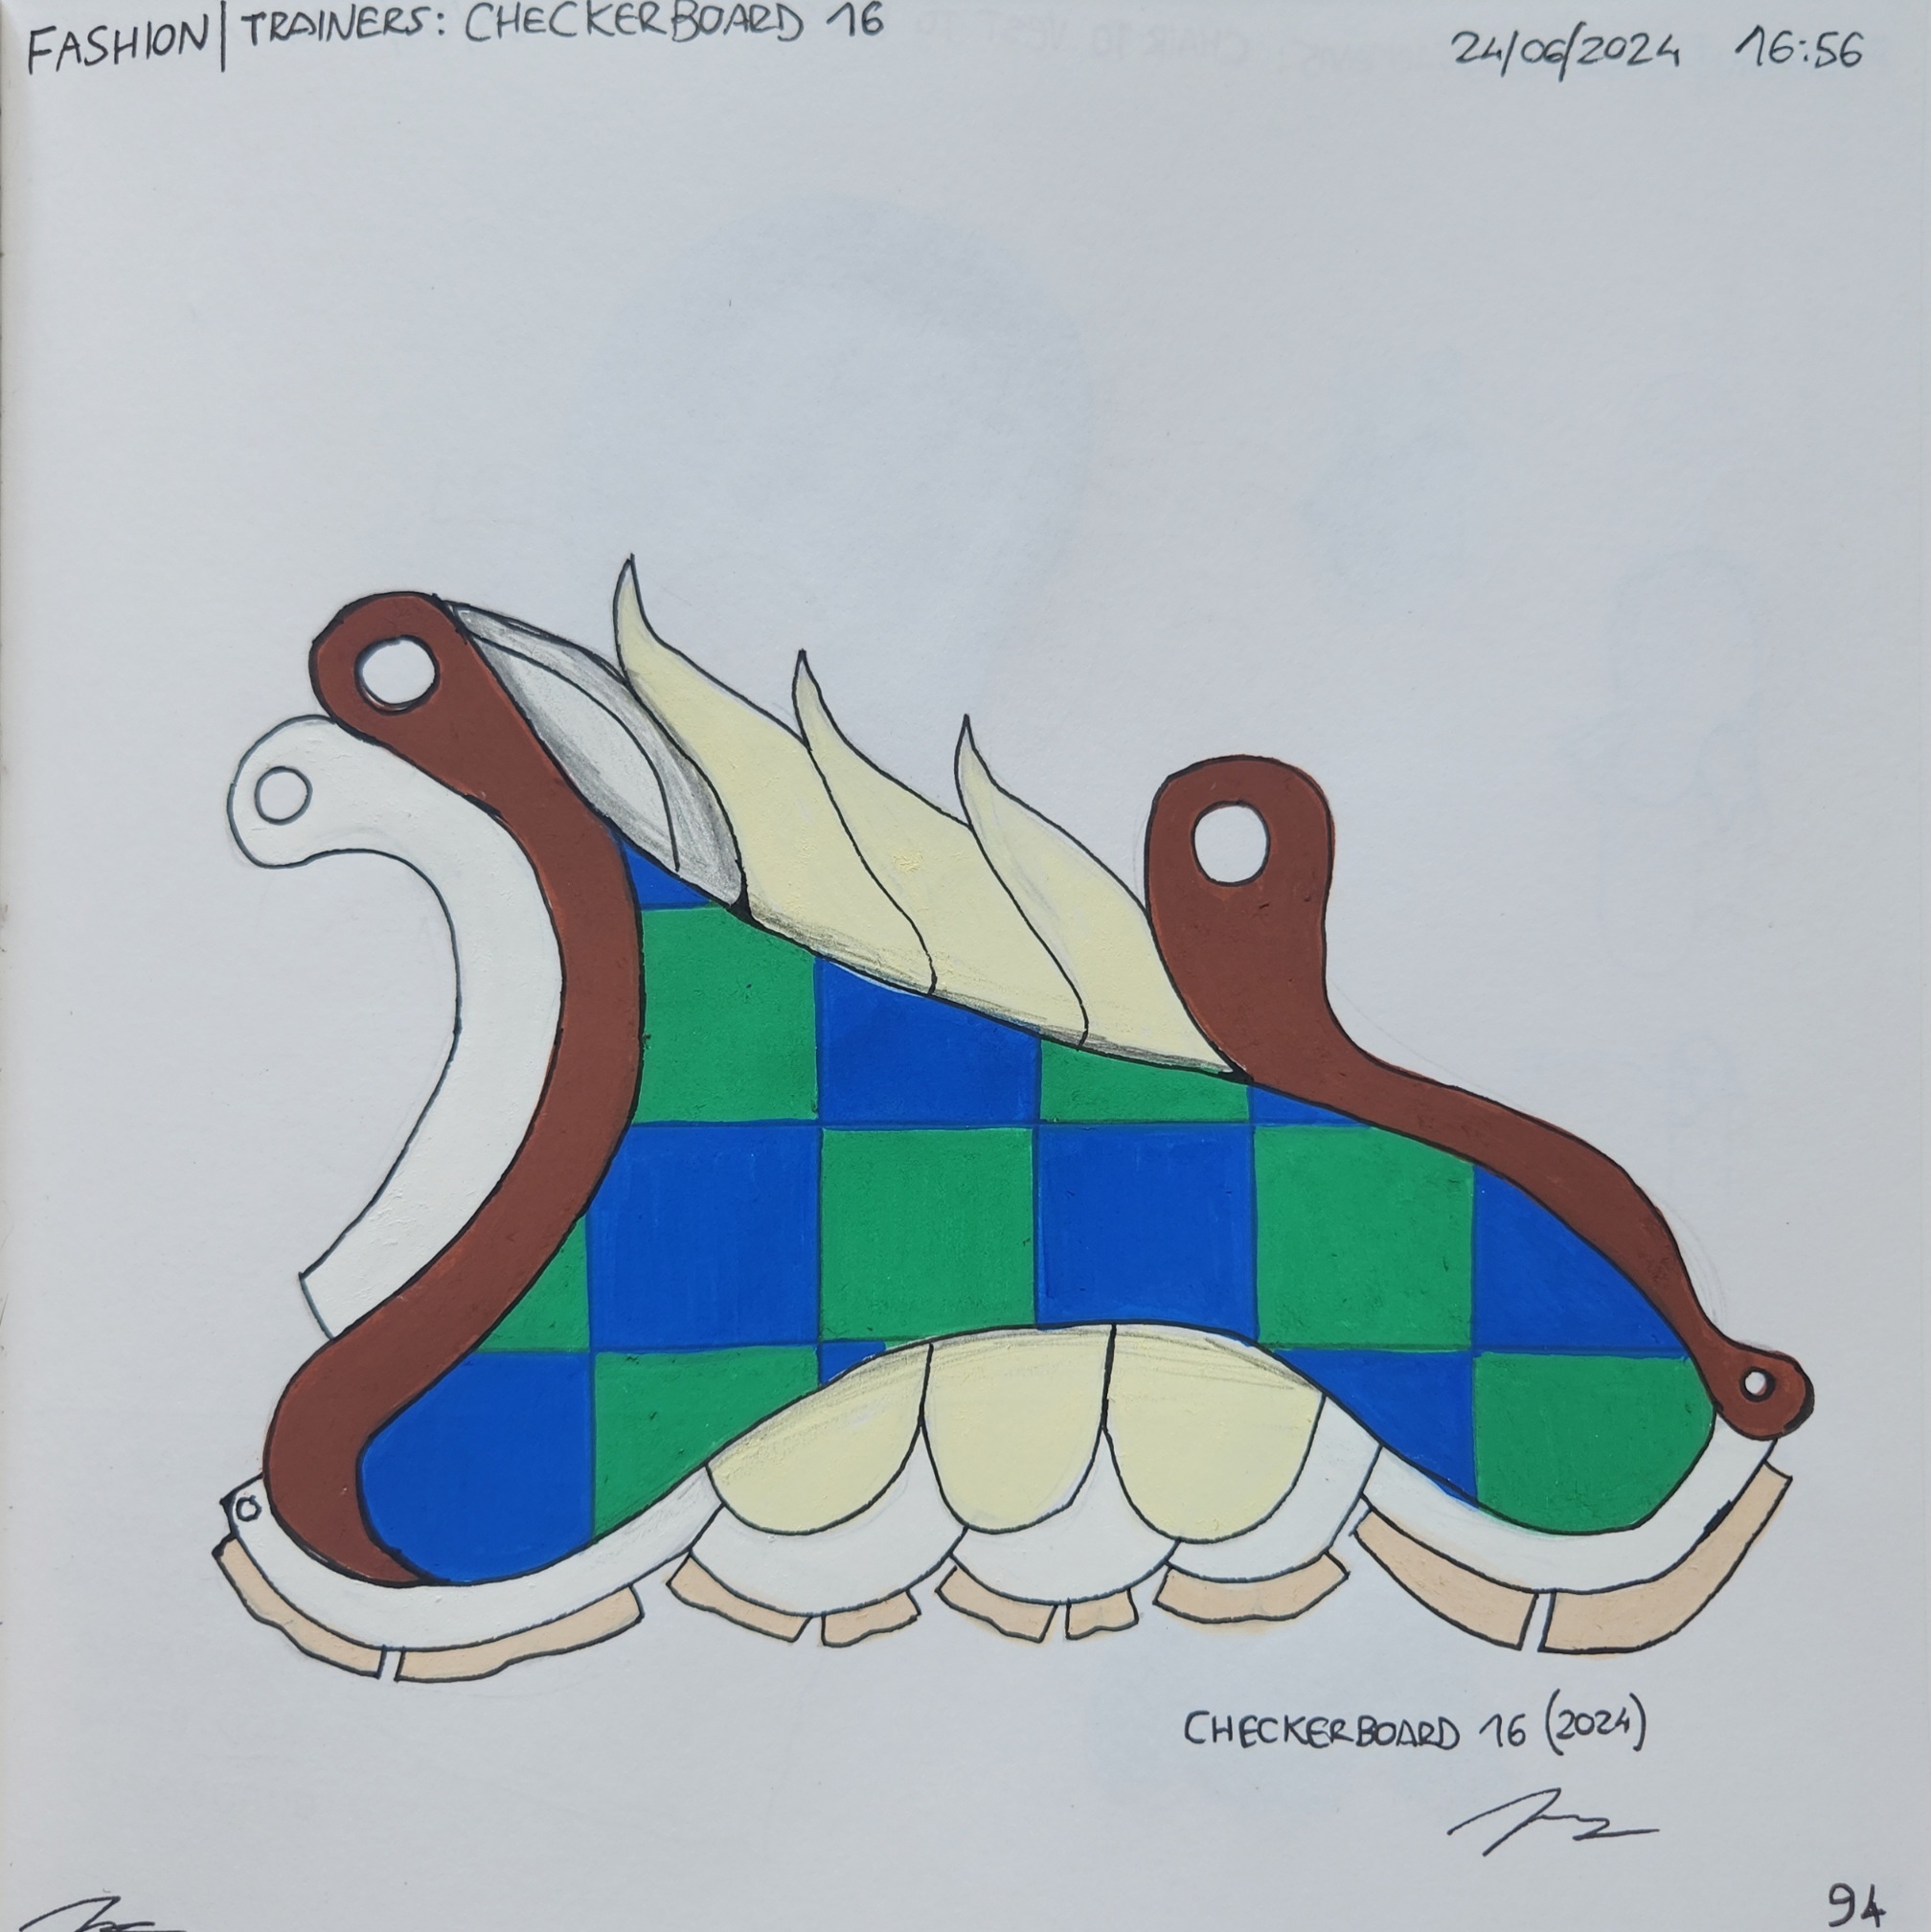 FASHION | TRAINERS: CHECKERBOARD 16
24/06/2024 16:56
CHECKERBOARD 16 (2024)
94